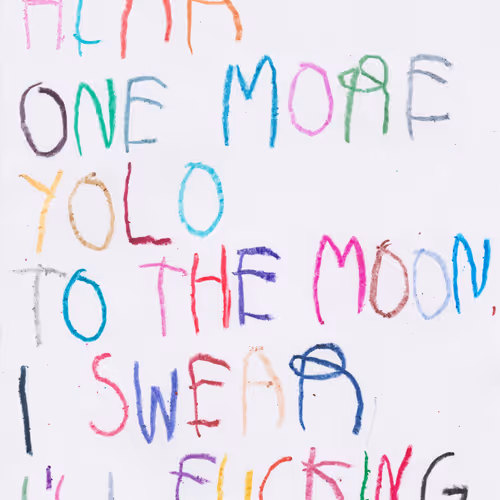 HEAR
ONE MORE
YOLO
TO THE MOON,
I SWEAR
I'LL FUCKING